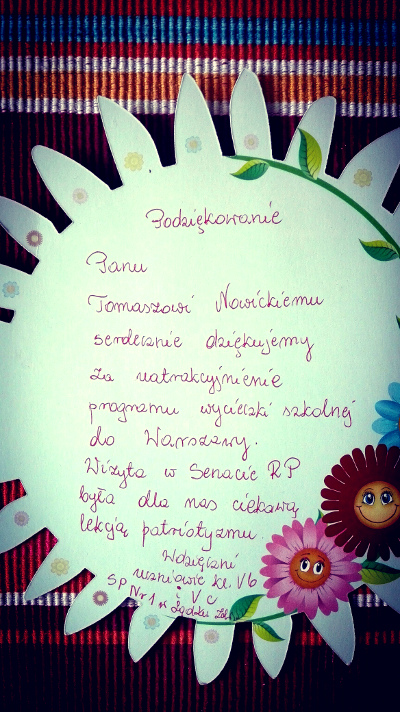 Podziękowanie
Panu
Tomaszowi Nowickiemu
serdecznie dziękujemy
za uatrakcyjnienie
programu wycieczki szkolnej
do Warszawy.
Wizyta w Senacie RP
była dla nas ciekawą
lekcją patriotyzmu.
Wdzięczni
uczniowie kl. Vb
i V c
SP Nr 1 w